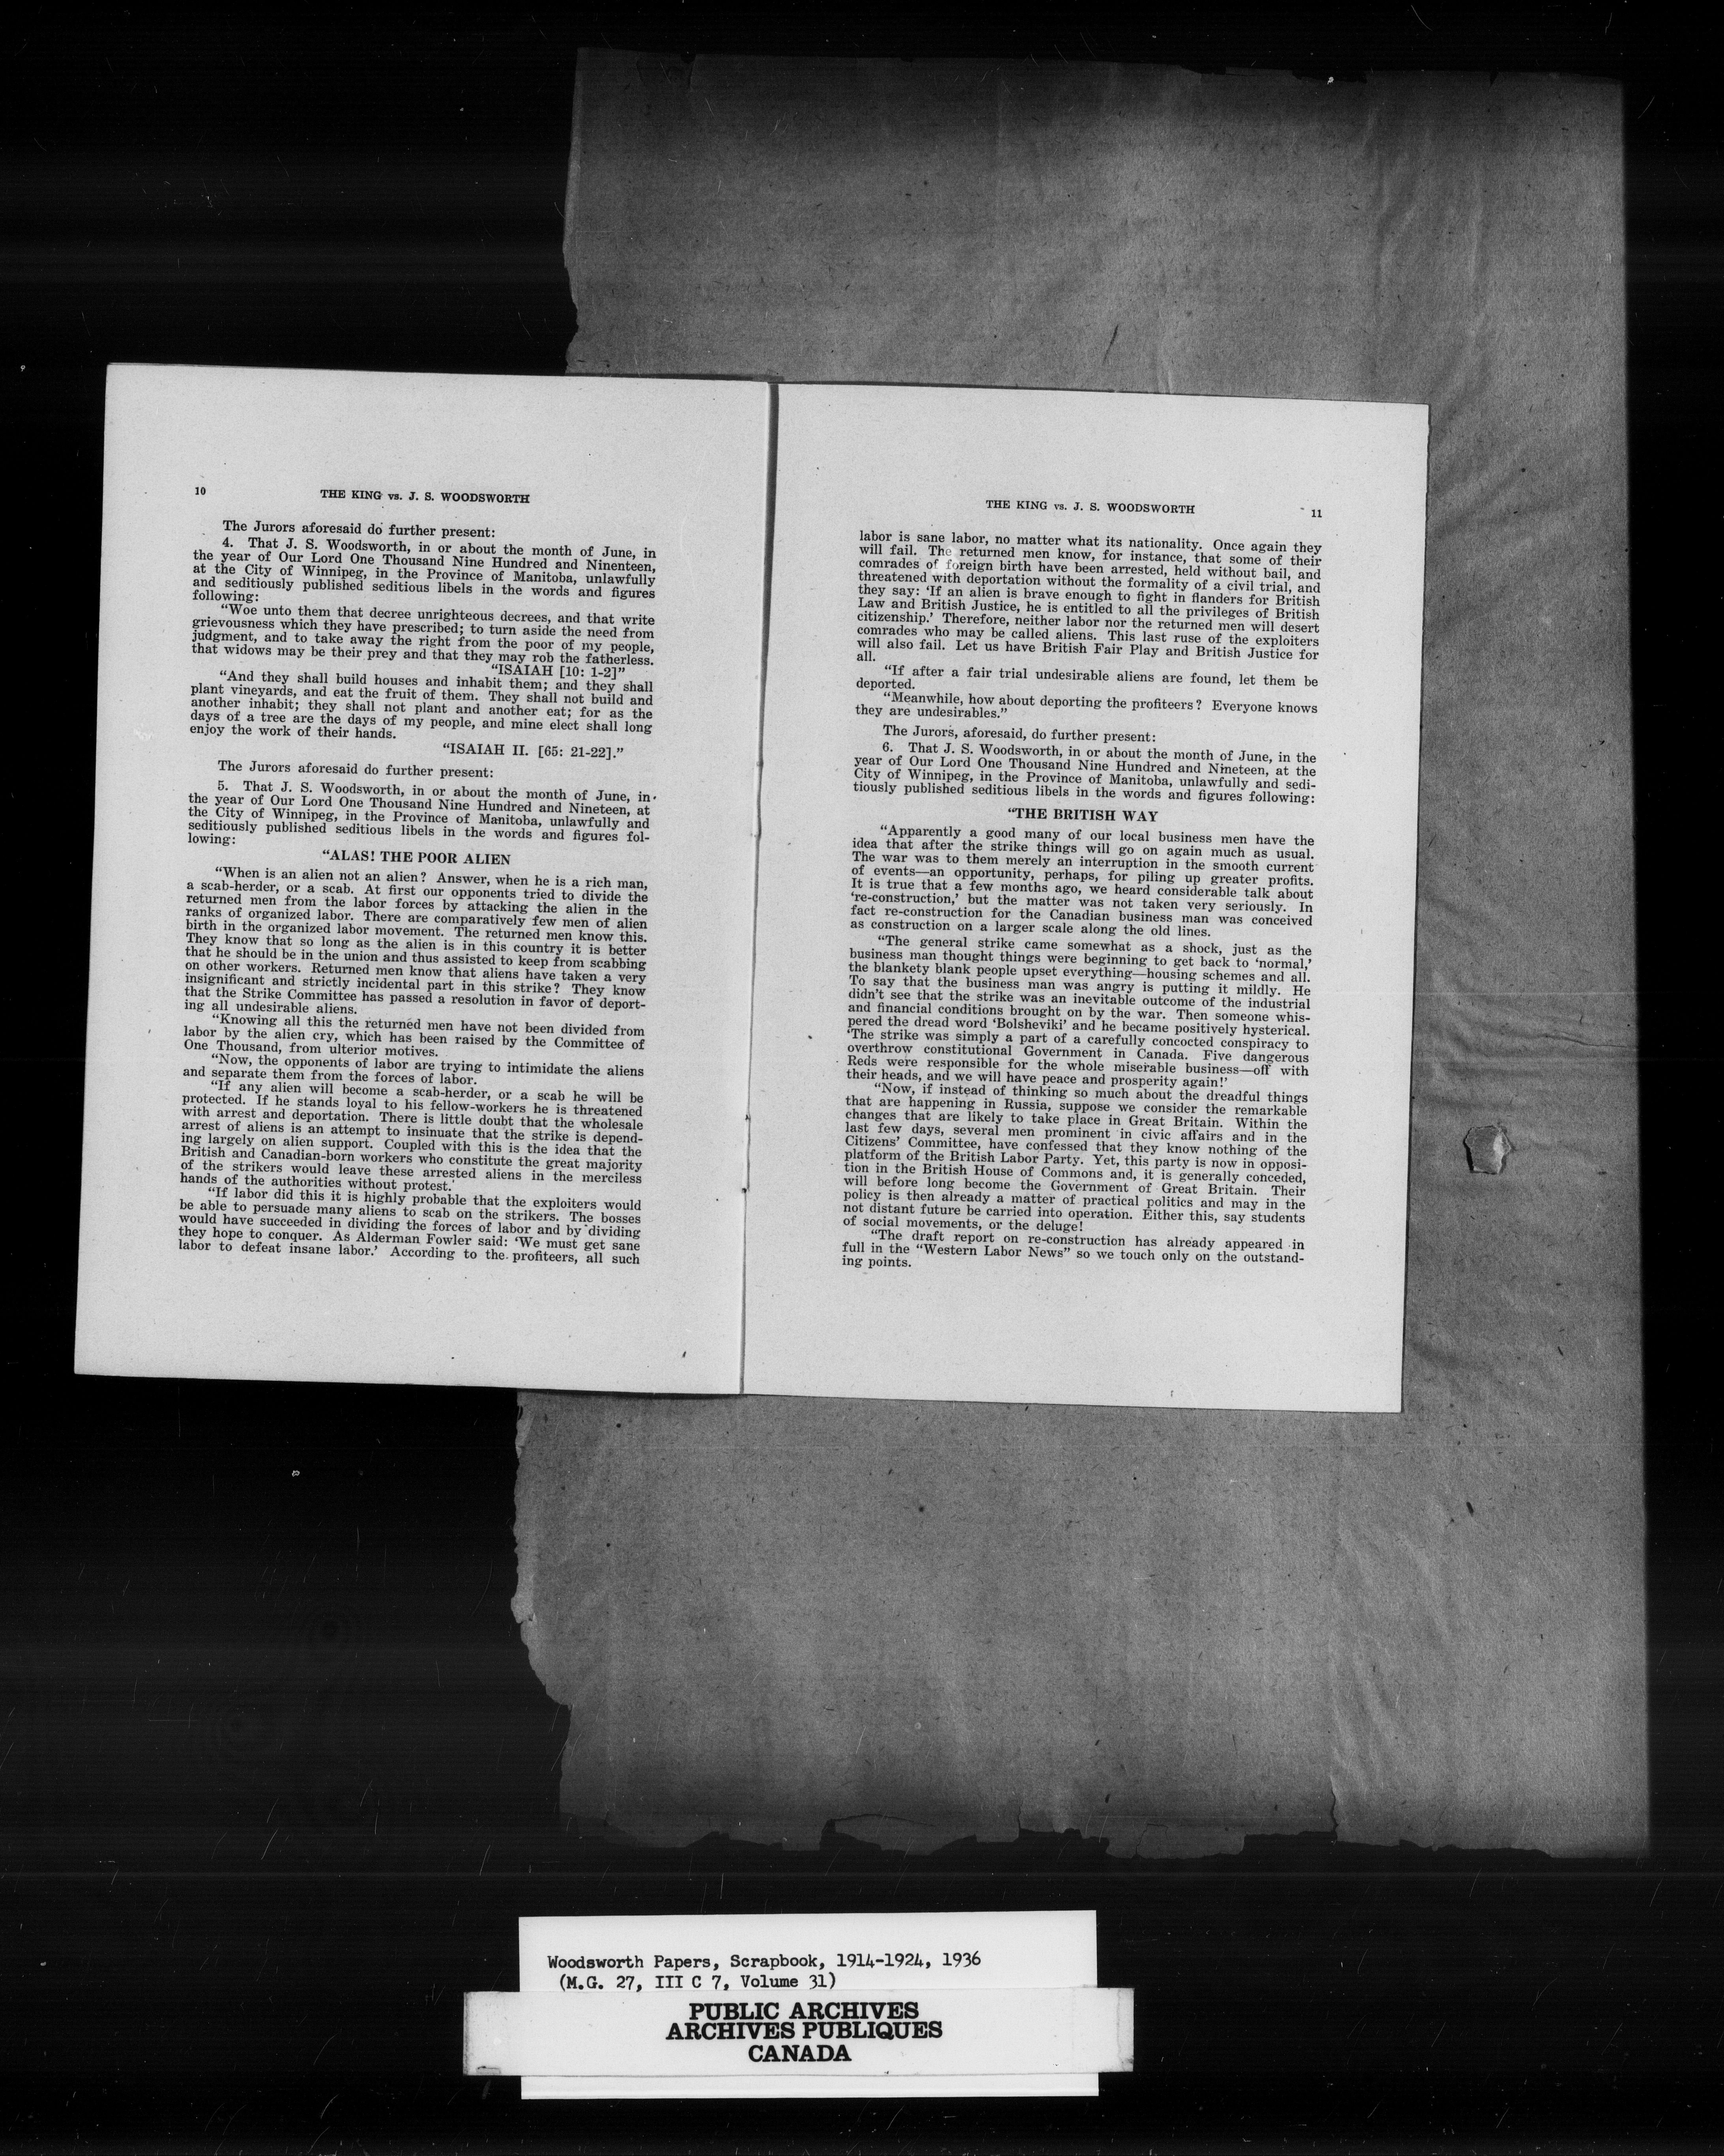 10
THE KING vs. J. S. WOODSWORTH
The Jurors aforesaid do further present:
4. That J. S. Woodsworth, in or about the month of June, in
the year of Our Lord One Thousand Nine Hundred and Ninenteen,
at the City of Winnipeg, in the Province of Manitoba, unlawfully
and seditiously published seditious libels in the words and figures
following:
“Woe unto them that decree unrighteous decrees, and that write
grievousness which they have prescribed; to turn aside the need from
judgment, and to take away the right from the poor of my people,
that widows may be their prey and that they may rob the fatherless.
“ISAIAH [10: 1-2]”
“And they shall build houses and inhabit them; and they shall
plant vineyards, and eat the fruit of them. They shall not build and
another inhabit; they shall not plant and another eat; for as the
days of a tree are the days of my people, and mine elect shall long
enjoy the work of their hands.
“ISAIAH II. [65: 21-22].”
The Jurors aforesaid do further present:
5. That J. S. Woodsworth, in or about the month of June, in
the year of Our Lord One Thousand Nine Hundred and Nineteen, at
the City of Winnipeg, in the Province of Manitoba, unlawfully and
seditiously published seditious libels in the words and figures fol-
lowing:
“ALAS! THE POOR ALIEN
“When is an alien not an alien? Answer, when he is a rich man,
a scab-herder, or a scab. At first our opponents tried to divide the
returned men from the labor forces by attacking the alien in the
ranks of organized labor. There are comparatively few men of alien
birth in the organized labor movement. The returned men know this.
They know that so long as the alien is in this country it is better
that he should be in the union and thus assisted to keep from scabbing
on other workers. Returned men know that aliens have taken a very
insignificant and strictly incidental part in this strike? They know
that the Strike Committee has passed a resolution in favor of deport-
ing all undesirable aliens.
“Knowing all this the returned men have not been divided from
labor by the alien cry, which has been raised by the Committee of
One Thousand, from ulterior motives.
“Now, the opponents of labor are trying to intimidate the aliens
and separate them from the forces of labor.
“If any alien will become a scab-herder, or a scab he will be
protected. If he stands loyal to his fellow-workers he is threatened
with arrest and deportation. There is little doubt that the wholesale
arrest of aliens is an attempt to insinuate that the strike is depend-
ing largely on alien support. Coupled with this is the idea that the
British and Canadian-born workers who constitute the great majority
of the strikers would leave these arrested aliens in the merciless
hands of the authorities without protest.
“If labor did this it is highly probable that the exploiters would
be able to persuade many aliens to scab on the strikers. The bosses
would have succeeded in dividing the forces of labor and by dividing
they hope to conquer. As Alderman Fowler said: ‘We must get sane
labor to defeat insane labor.’ According to the profiteers, all such
THE KING vs. J. S. WOODSWORTH
11
labor is sane labor, no matter what its nationality. Once again they
will fail. The returned men know, for instance, that some of their
comrades of foreign birth have been arrested, held without bail, and
threatened with deportation without the formality of a civil trial, and
they say: ‘If an alien is brave enough to fight in flanders for British
Law and British Justice, he is entitled to all the privileges of British
citizenship.’ Therefore, neither labor nor the returned men will desert
comrades who may be called aliens. This last ruse of the exploiters
will also fail. Let us have British Fair Play and British Justice for
all.
“If after a fair trial undesirable aliens are found, let them be
deported.
“Meanwhile, how about deporting the profiteers? Everyone knows
they are undesirables.”
The Jurors, aforesaid, do further present:
6. That J. S. Woodsworth, in or about the month of June, in the
year of Our Lord One Thousand Nine Hundred and Nineteen, at the
City of Winnipeg, in the Province of Manitoba, unlawfully and sedi-
tiously published seditious libels in the words and figures following:
“THE BRITISH WAY
“Apparently a good many of our local business men have the
idea that after the strike things will go on again much as usual.
The war was to them merely an interruption in the smooth current
of events—an opportunity, perhaps, for piling up greater profits.
It is true that a few months ago, we heard considerable talk about
‘re-construction,’ but the matter was not taken very seriously. In
fact re-construction for the Canadian business man was conceived
as construction on a larger scale along the old lines.
“The general strike came somewhat as a shock, just as the
business man thought things were beginning to get back to ‘normal,’
the blankety blank people upset everything—housing schemes and all.
To say that the business man was angry is putting it mildly. He
didn’t see that the strike was an inevitable outcome of the industrial
and financial conditions brought on by the war. Then someone whis-
pered the dread word ‘Bolsheviki’ and he became positively hysterical.
‘The strike was simply a part of a carefully concocted conspiracy to
overthrow constitutional Government in Canada. Five dangerous
Reds were responsible for the whole miserable business—off with
their heads, and we will have peace and prosperity again!’
“Now, if instead of thinking so much about the dreadful things
that are happening in Russia, suppose we consider the remarkable
changes that are likely to take place in Great Britain. Within the
last few days, several men prominent in civic affairs and in the
Citizens’ Committee, have confessed that they know nothing of the
platform of the British Labor Party. Yet, this party is now in opposi-
tion in the British House of Commons and, it is generally conceded,
will before long become the Government of Great Britain. Their
policy is then already a matter of practical politics and may in the
not distant future be carried into operation. Either this, say students
of social movements, or the deluge!
“The draft report on re-construction has already appeared in
full in the “Western Labor News” so we touch only on the outstand-
ing points.
Woodsworth Papers, Scrapbook, 1914-1924, 1936
(M.G. 27, III C 7, Volume 31)
PUBLIC ARCHIVES
ARCHIVES PUBLIQUES
CANADA